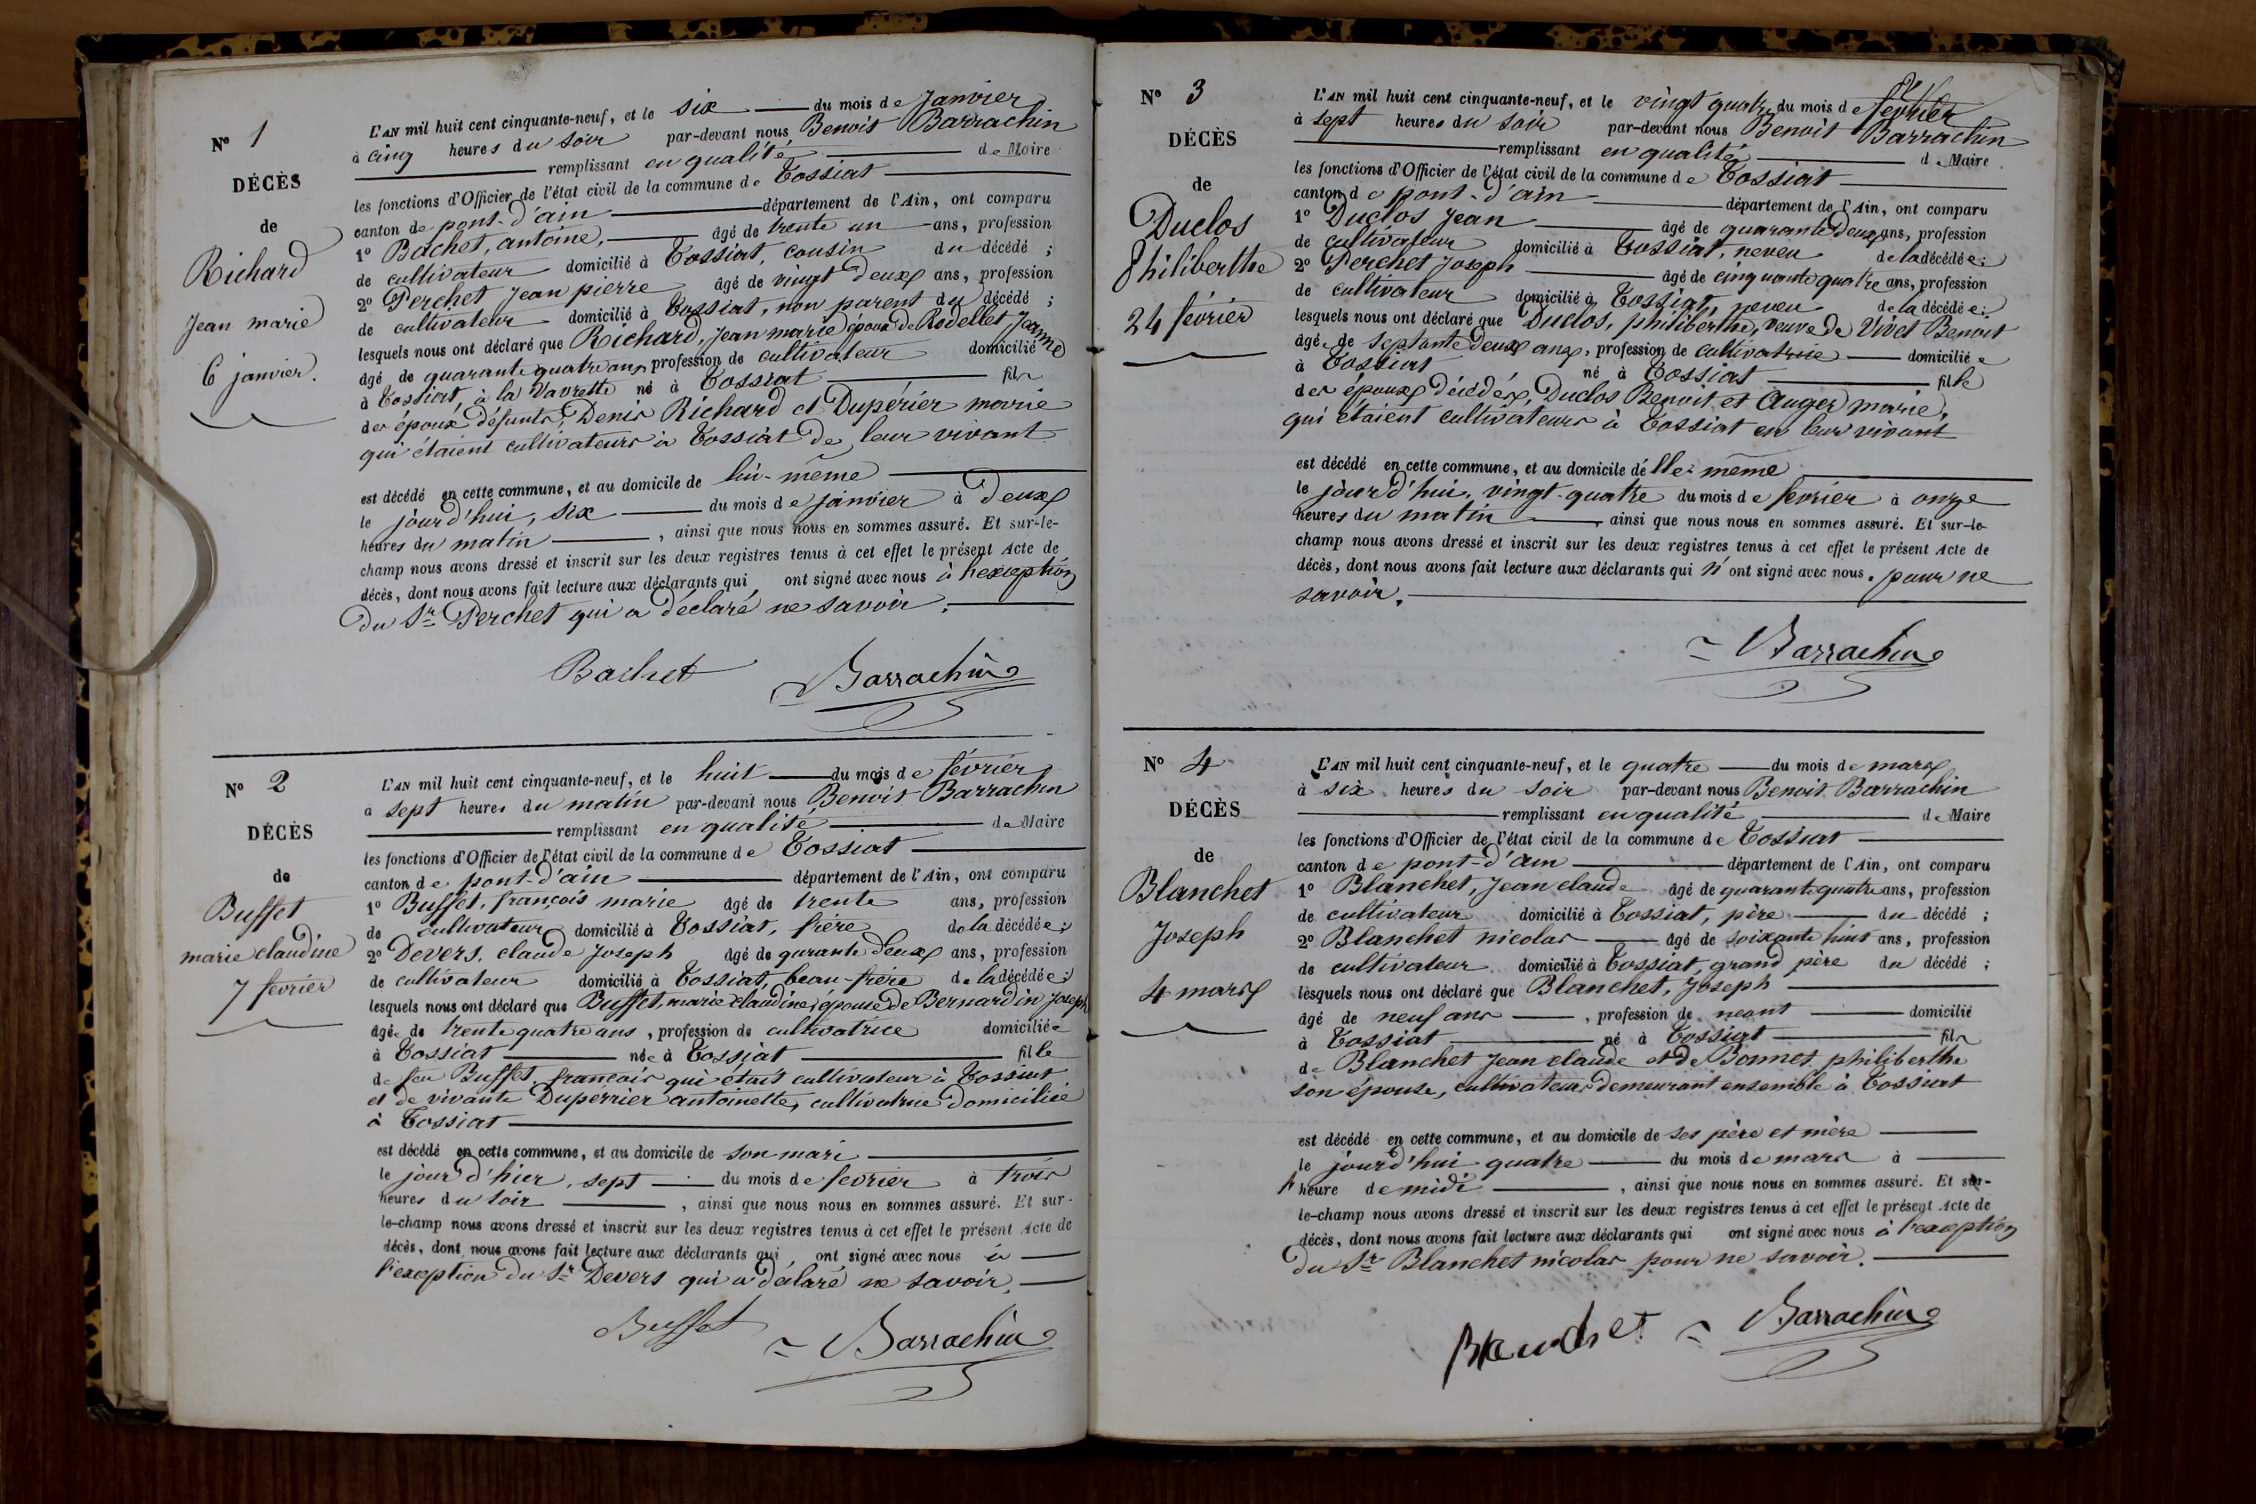 N° 1
DÉCÈS
de
Richard
Jean marie
6 janvier.
L'AN mil huit cent cinquante-neuf, et le six du mois de Janvier
à cinq heures du soir par-devant nous Benoit Barrachin
remplissant en qualité de Maire
les fonctions d'Officier de l'état civil de la commune de Tossiat
canton de pont-d'ain département de l'Ain, ont comparu
1° Bachet, antoine, âgé de trente un ans, profession
de cultivateur domicilié à Tossiat, cousin du décédé ;
2° Perchet Jean pierre âgé de vingt deux ans, profession
de cultivateur domicilié à Tossiat, non parent du décédé ;
lesquels nous ont déclaré que Richard, Jean marie époux de Rodellet Jeanne
âgé de quarante quatre ans profession de cultivateur domicilié
à Tossiat, à la Vavrette né à Tossiat fils
des époux défunts, Denis Richard et Dupérier marie
qui étaient cultivateurs à Tossiat de leur vivant
est décédé en cette commune, et au domicile de lui-même
le jourd'hui, six du mois de janvier à deux
heures du matin , ainsi que nous nous en sommes assuré. Et sur-le-
champ nous avons dressé et inscrit sur les deux registres tenus à cet effet le présent Acte de
décès, dont nous avons fait lecture aux déclarants qui ont signé avec nous à l'exception
du Sr Perchet qui a déclaré ne savoir.
Bachet Barrachin
N° 2
DÉCÈS
de
Buffet
marie claudine
7 fevrier
L'AN mil huit cent cinquante-neuf, et le huit du mois de février
à sept heures du matin par-devant nous Benoit Barrachin
remplissant en qualité de Maire
les fonctions d'Officier de l'état civil de la commune de Tossiat
canton de pont-d'ain département de l'Ain, ont comparu
1° Buffet, françois marie âgé de trente ans, profession
de cultivateur domicilié à Tossiat, frère de la décédée ;
2° Devers, claude Joseph âgé de qurante deux ans, profession
de cultivateur domicilié à Tossiat, beau-frère de la décédée ;
lesquels nous ont déclaré que Buffet, marie claudine, épouse de Bernardin Joseph
âgée de trente quatre ans , profession de cultivatrice domiciliée
à Tossiat née à Tossiat fille
de feu Buffet françois qui était cultivateur à Tossiat
et de vivante Duperrier antoinette, cultivatrice domiciliée
à Tossiat
est décédé en cette commune, et au domicile de son mari
le jour d'hier, sept du mois de fevrier à trois
heures du soir , ainsi que nous nous en sommes assuré. Et sur-
le-champ nous avons dressé et inscrit sur les deux registres tenus à cet effet le présent Acte de
décès, dont nous avons fait lecture aux déclarants qui ont signé avec nous à
l'exception du Sr Devers qui a déclaré ne savoir.
Buffet Barrachin
N° 3
DÉCÈS
de
Duclos
Philiberthe
24 février
L'AN mil huit cent cinquante-neuf, et le vingt quatre du mois de février
à sept heures du soir par-devant nous Benoit Barrachin
remplissant en qualité de Maire
les fonctions d'Officier de l'état civil de la commune de Tossiat
canton de pont-d'ain département de l'Ain, ont comparu
1° Duclos Jean âgé de quarante deux ans, profession
de cultivateur domicilié à Tossiat, neveu de la décédée ;
2° Perchet Joseph âgé de cinquante quatre ans, profession
de cultivateur domicilié à Tossiat, neveu de la décédée ;
lesquels nous ont déclaré que Duclos, philiberthe, veuve de Vivet Benoit
âgée de septante deux ans, profession de cultivatrice domiciliée
à Tossiat né à Tossiat fille
des époux décédés, Duclos Benoit et Auger marie,
qui étaient cultivateurs à Tossiat en leur vivant
est décédé en cette commune, et au domicile d'elle-même
le jourd'hui, vingt-quatre du mois de fevrier à onze
heures du matin ainsi que nous nous en sommes assuré. Et sur-le-
champ nous avons dressé et inscrit sur les deux registres tenus à cet effet le présent Acte de
décès, dont nous avons fait lecture aux déclarants qui n'ont signé avec nous. pour ne
savoir.
Barrachin
N° 4
DÉCÈS
de
Blanchet
Joseph
4 mars
L'AN mil huit cent cinquante-neuf, et le quatre du mois de mars
à six heures du soir par-devant nous Benoit Barrachin
remplissant en qualité de Maire
les fonctions d'Officier de l'état civil de la commune de Tossiat
canton de pont-d'ain département de l'Ain, ont comparu
1° Blanchet, Jean claude âgé de quarante quatre ans, profession
de cultivateur domicilié à Tossiat, père du décédé ;
2° Blanchet nicolas âgé de soixante huit ans, profession
de cultivateur domicilié à Tossiat, grand père du décédé ;
lesquels nous ont déclaré que Blanchet, Joseph
âgé de neuf ans , profession de neant domicilié
à Tossiat né à Tossiat fils
de Blanchet Jean claude et de Bonnet philiberthe
son épouse, cultivateurs demeurant ensemble à Tossiat
est décédé en cette commune, et au domicile de ses père et mère
le jourd'hui quatre du mois de mars à
heure de midi , ainsi que nous nous en sommes assuré. Et sur-
le-champ nous avons dressé et inscrit sur les deux registres tenus à cet effet le présent Acte de
décès, dont nous avons fait lecture aux déclarants qui ont signé avec nous à l'exception
du Sr Blanchet nicolas pour ne savoir.
Blanchet Barrachin